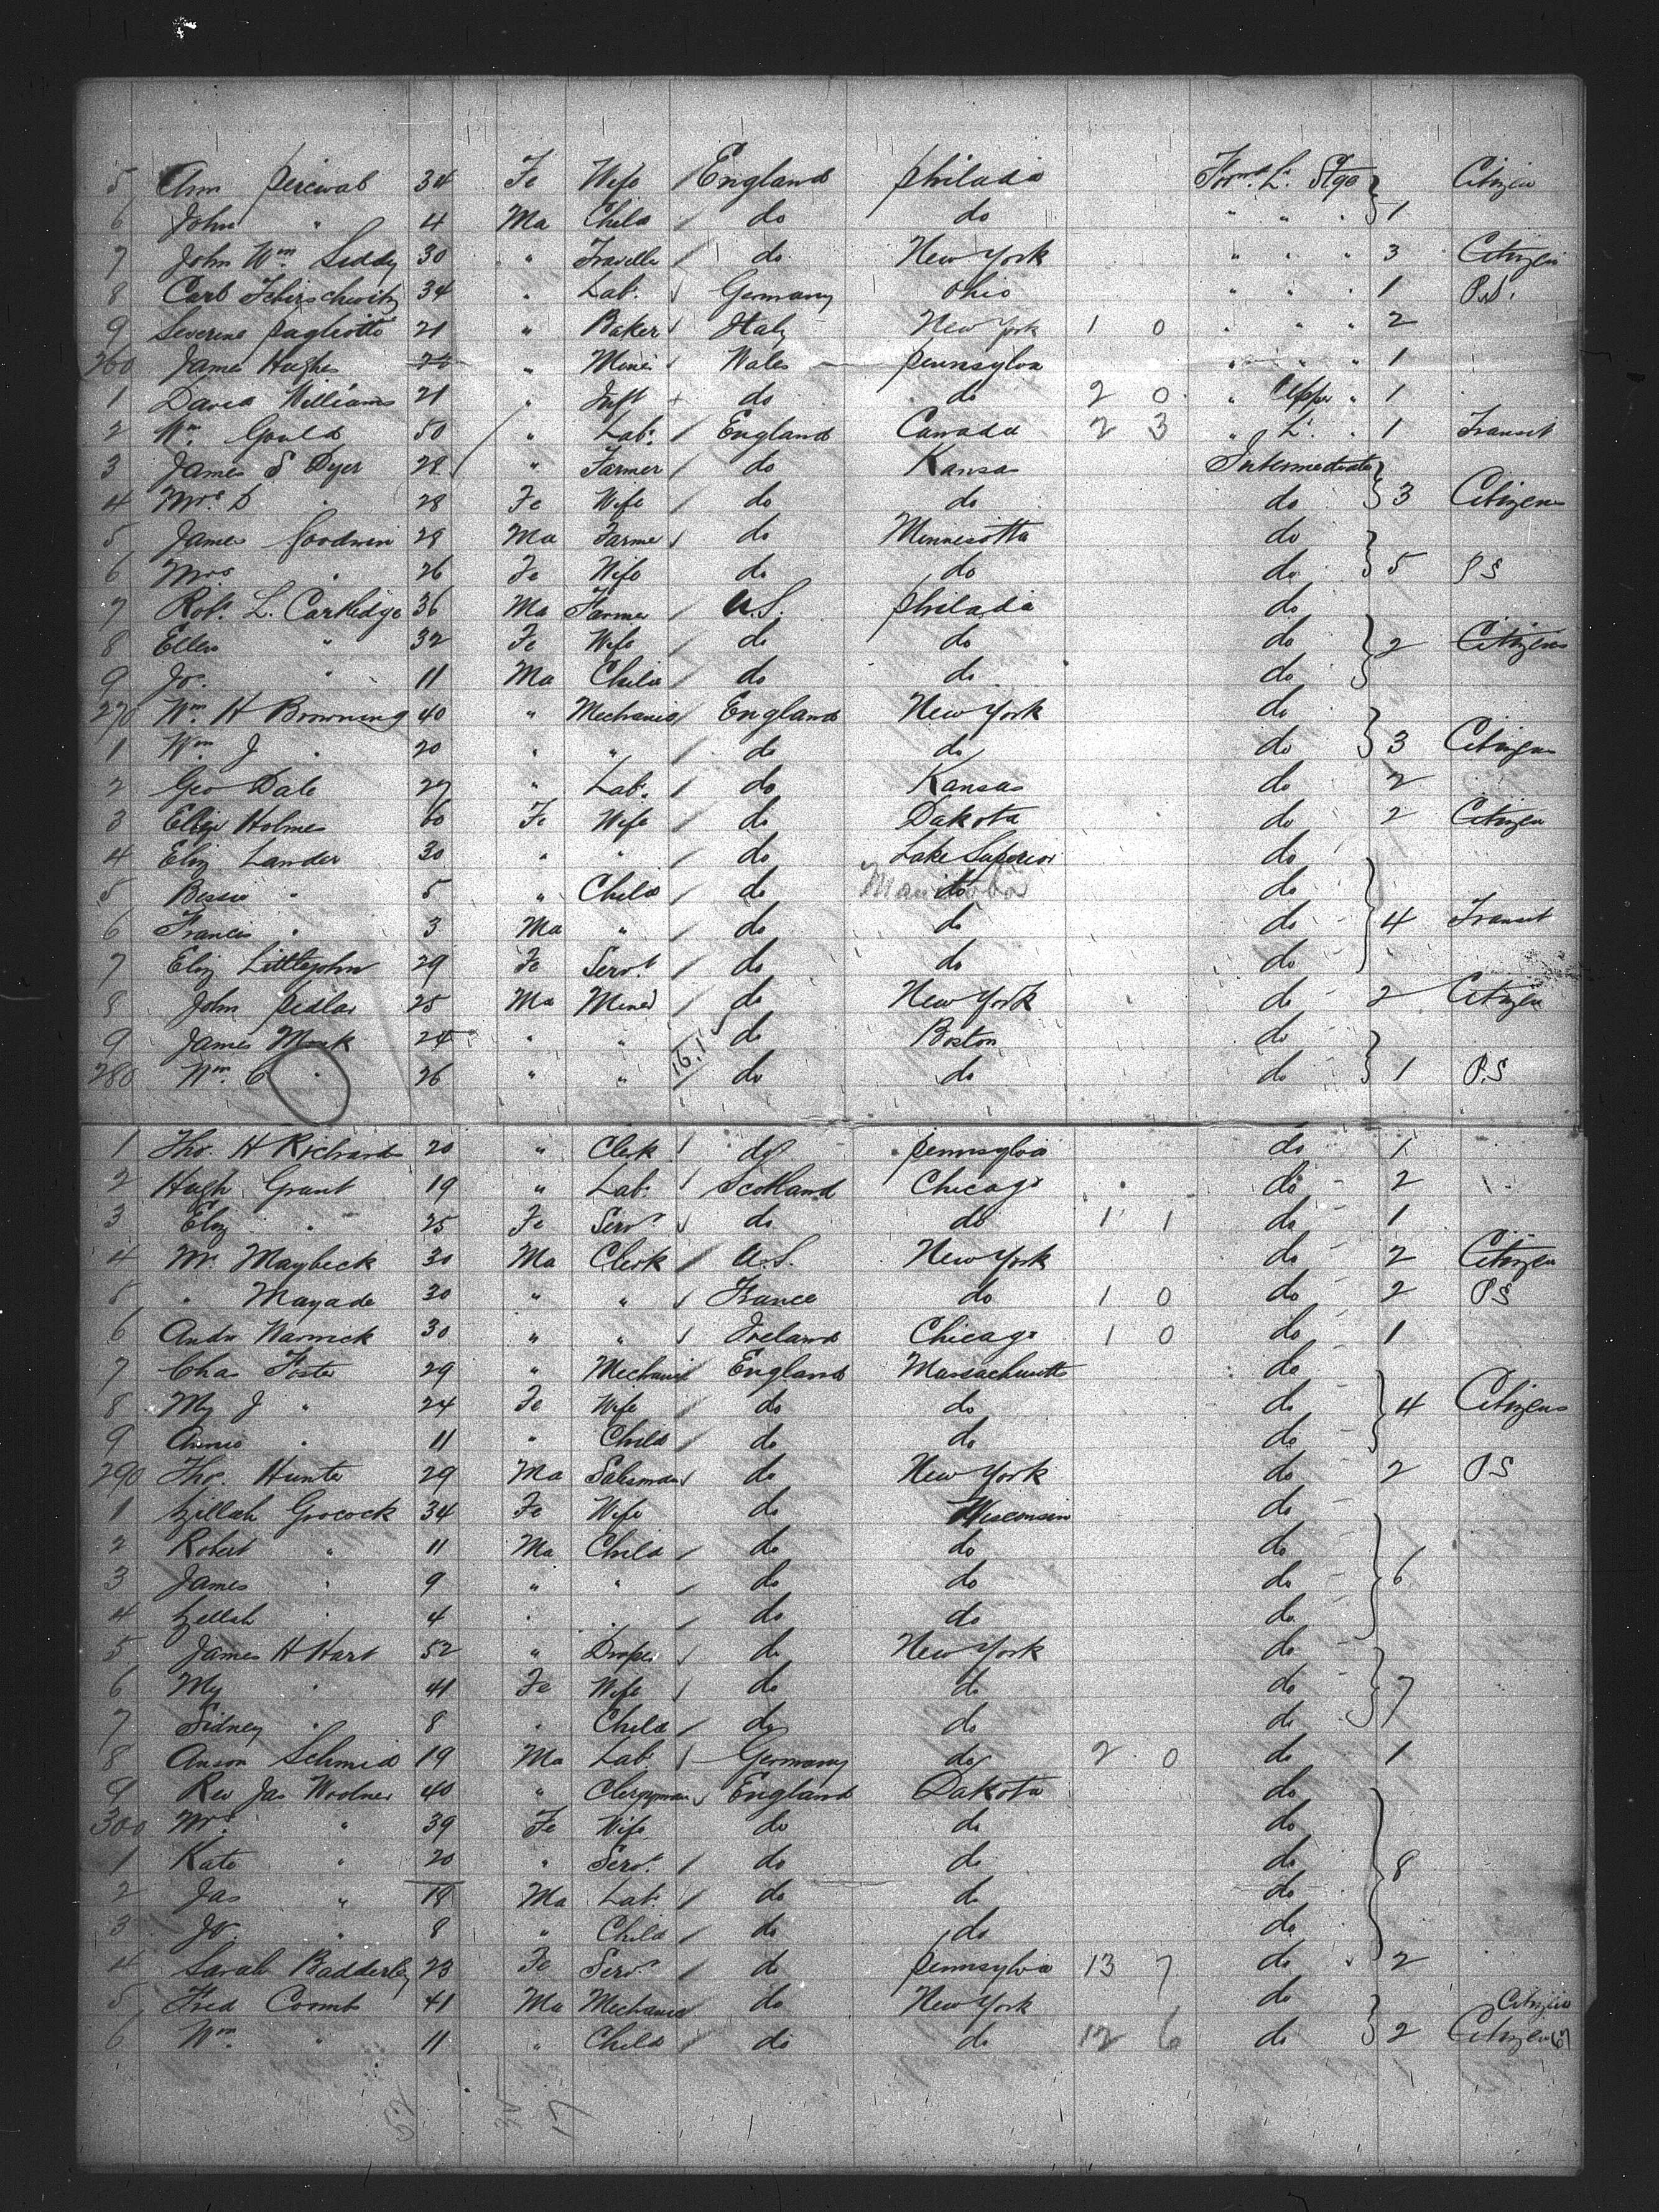 5 Ann Percival 34 Fe Wife / England Philada Forwd L. Stge } Citizen
6 John " 4 Ma Child / do do " " " } 1
7 John Wm Liddy 30 " Travelle / do New York " " " 3 Citizen
8 Carl 34 " Lab. Germany Ohio " " " 1 P.S.
9 Severino Pagliotti 21 " Baker Italy New York 1 0 " " " 2
260 James Hughes " Miner Wales Pennsylva " " " 1
1 David Williams 21 " + do do 2 0 " Upper " 1
2 Wm Gould 50 " Lab. / England Canada 2 3 " L. " 1 Transit
3 James S Dyer 28 " Farmer / do Kansas Intermediate }
4 Mrs D " 28 Fe Wife / do do do } 3 Citizens
5 James Goodwin 28 Ma Farmer do Minnesotta do }
6 Mrs " 26 Fe Wife / do do do } 5 P S
7 Robt. L. Cartledge 36 Ma Farmer / U.S. Philada do
8 Ellen " 32 Fe Wife / do do do } 2 Citizens
9 Jo. " 11 Ma Child / do do do
270 Wm H Browning 40 " Mechanic / England New York do
1 Wm J " 20 " " / do do do } 3 Citizens
2 Geo Dale 27 " Lab. / do Kansas do 2
3 Eliz Holmes 60 Fe Wife / do Dakota do 2 Citizen
4 Eliz Lander 30 " " / do Lake Superior do
5 Bessie " 5 " Child / do Manitoba do do
6 Francis " 3 Ma " / do do do } 4 Transit
7 Eliz Littlejohn 29 Fe Servt / do do do
8 John Pedlar 25 Ma Miner / do New York do 2 Citizen
9 James Monk 24 " " 16.1 do Boston do
280 Wm C " 26 " " / do do do } 1 P.S
1 Tho. H Richards 20 " Clerk do Pennsylva do 1
2 Hugh Grant 19 " Lab. Scotland Chicago do 2
3 Eliz " 25 Fe Servt do do 1 1 do 1
4 Mr. Maybeck 30 Ma Clerk / U.S. New York do 2 Citizen
5 " Mayade 30 " " France do 1 0 do 2 PS
6 Andw Warnick 30 " " Ireland Chicago 1 0 do 1
7 Chas Foster 29 " Mechanic England Massachusetts do
8 My J " 24 Fe Wife / do do do } 4 Citizens
9 Annie " 11 " Child / do do do
290 Tho. Hunter 29 Ma Salesman do New York do 2 PS
1 Zillah Grocock 34 Fe Wife do Wisconsin do
2 Robert " 11 Ma Child / do do do
3 James " 9 " " / do do do } 6
4 Zillah " 4 " " / do do do
5 James H Hart 52 " Draper do New York do
6 My " 41 Fe Wife do do do } 7
7 Sidney " 8 " Child / do do do
8 Anson Schmid 19 Ma Lab. Germany do 2 0 do 1
9 Rev Jas Woolner 40 " Clergyman England Dakota do
300 Mrs. " 39 Fe Wife do do do
1 Kate " 20 " Servt. / do do do } 8
2 Jas " 18 Ma Lab. / do do do
3 Jo. " 8 " Child / do do do
4 Sarah Badderley 23 Fe Servt / do Pennsylva 13 7 do 2
5 Fred Coombs 41 Ma Mechanic do New York do Citizen
6 Wm " 11 " Child / do do 12 6 do } 2 Citizen